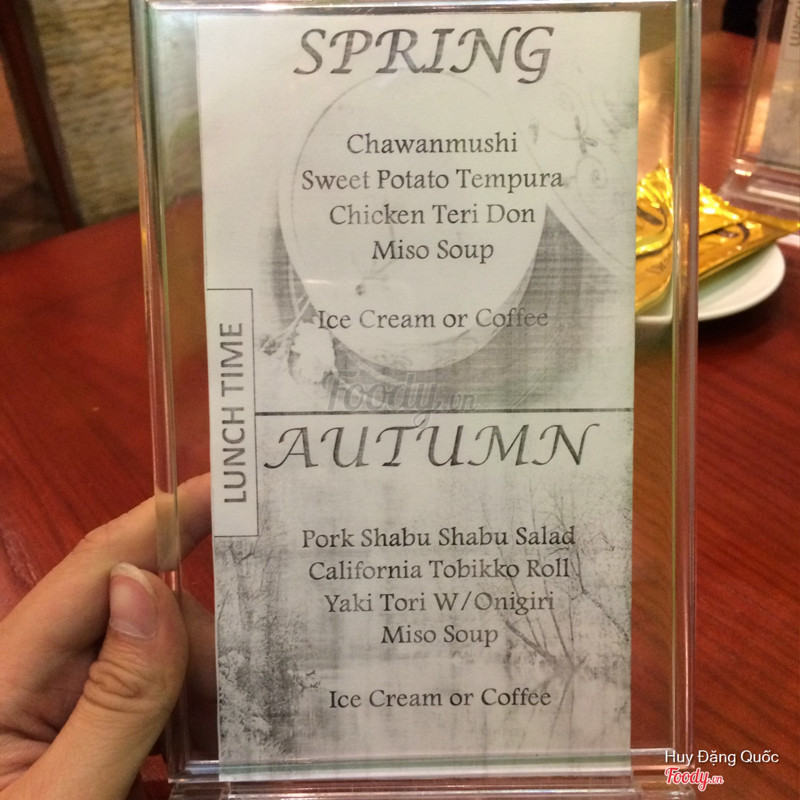 SPRING
Chawanmushi
Sweet Potato Tempura
Chicken Teri Don
Miso Soup
Ice Cream or Coffee
LUNCH TIME
Foody.vn
AUTUMN
Pork Shabu Shabu Salad
California Tobikko Roll
Yaki Tori W/Onigiri
Miso Soup
Ice Cream or Coffee
Huy Đặng Quốc
Foody.vn